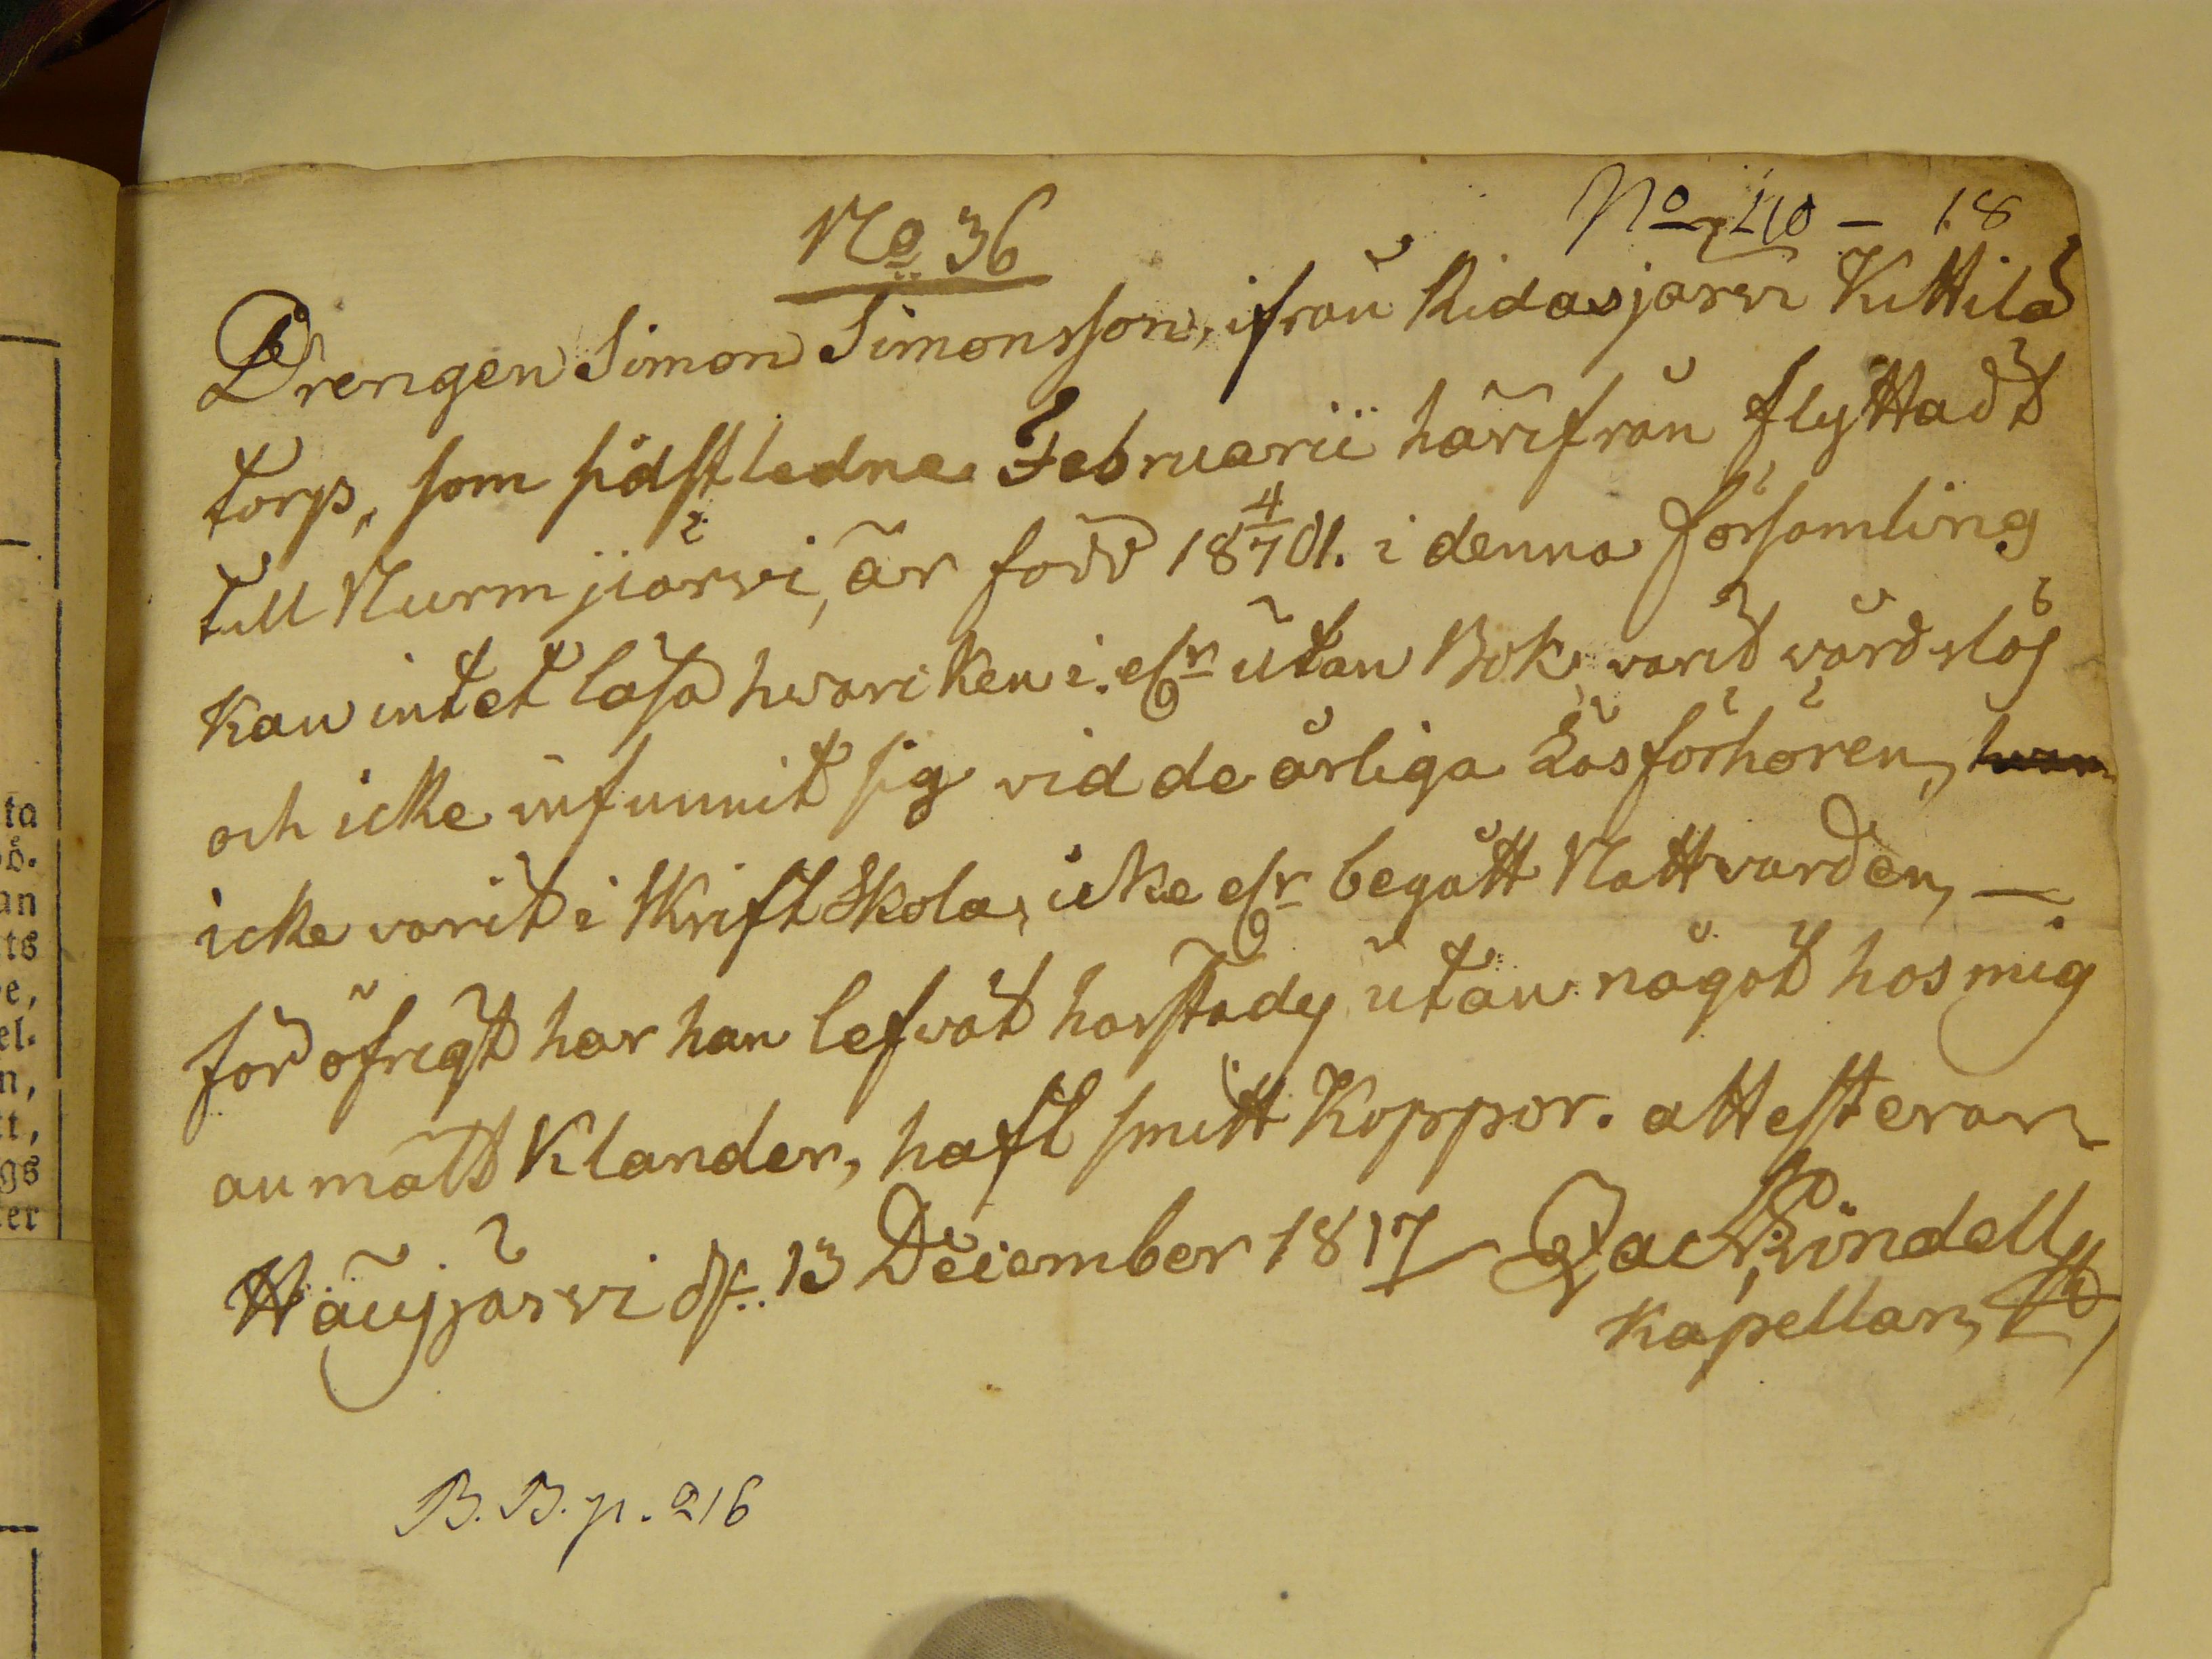 No 36
No 40 – 18
Drengen Simon Simonsson, ifrån Ridasjärvi Kittilä
torp, som sidstledne Februarii härifrån flyttadt
till Nurmjärvi, är född 18 4/7 01. i denna församling
kan intet läsa hvarcken i. elr utan Bok, varit vårdslös
och icke infunnit sig vid de årliga Läsförhören,
icke varit i Skriftskola, icke elr begått Nattvarden, —
för öfrigt har han lefvat härstädes utan något hos mig
anmält klander, haft smitt Koppor. attesterar
Hausjärvi d. 13 December 1817 Zach Lindell
Kapellan
B. B. p. 216
ta
ö.
an
ts
e,
el.
n,
tt,
gs
er